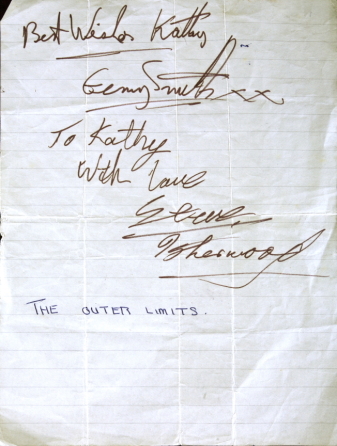 Best Wishes Kathy
Gerry Smith xx
To Kathy
With Love
Steve
Isherwood
THE OUTER LIMITS.